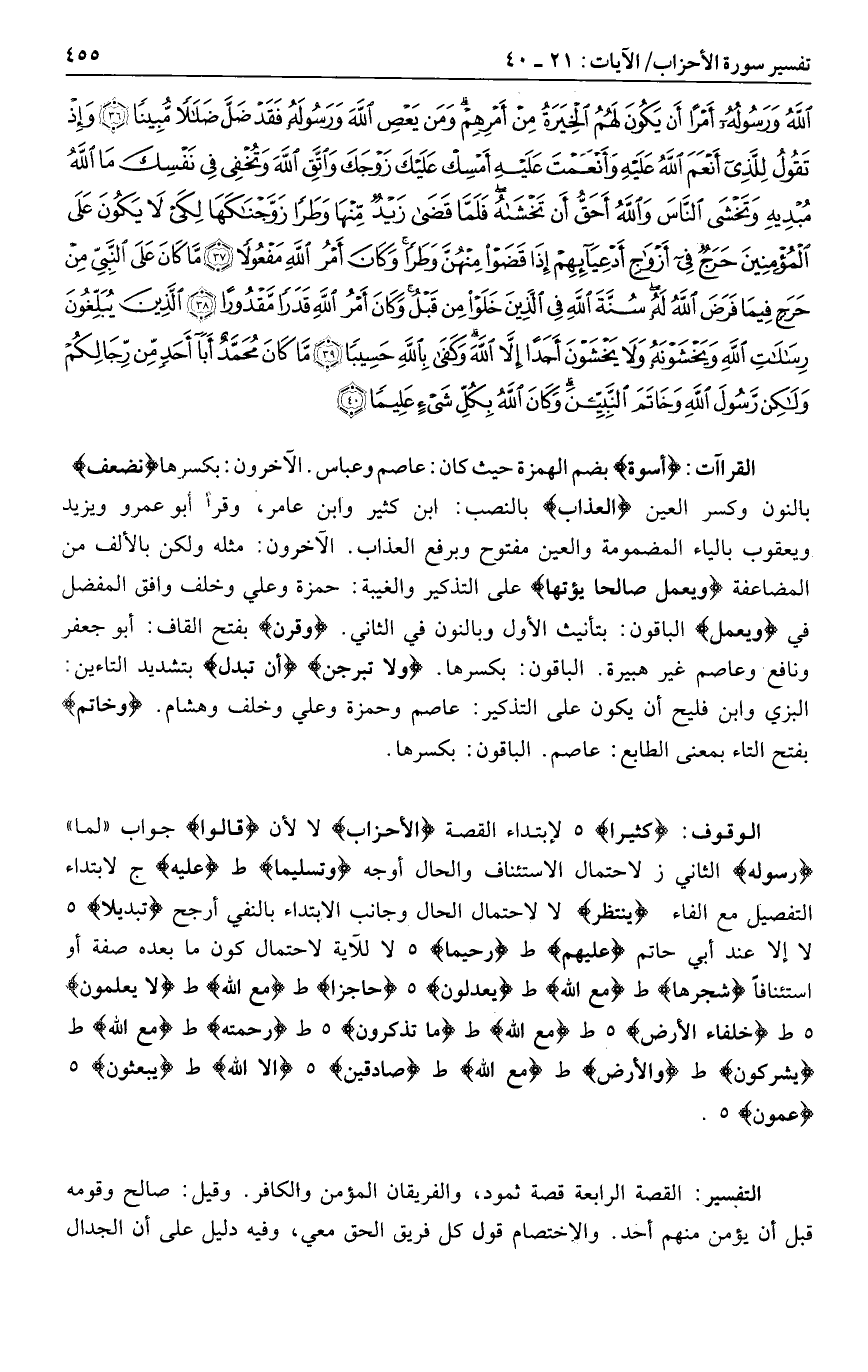 تفسير سورة الأحزاب/ الآيات: ٢١ ـ ٤٠ ٤٥٥
ٱللَّهُ وَرَسُولُهُۥٓ أَمْرًا أَن يَكُونَ لَهُمُ ٱلْخِيَرَةُ مِنْ أَمْرِهِمْ ۗ وَمَن يَعْصِ ٱللَّهَ وَرَسُولَهُۥ فَقَدْ ضَلَّ ضَلَـٰلًا مُّبِينًا ﴿٣٦﴾ وَإِذْ
تَقُولُ لِلَّذِىٓ أَنْعَمَ ٱللَّهُ عَلَيْهِ وَأَنْعَمْتَ عَلَيْهِ أَمْسِكْ عَلَيْكَ زَوْجَكَ وَٱتَّقِ ٱللَّهَ وَتُخْفِى فِى نَفْسِكَ مَا ٱللَّهُ
مُبْدِيهِ وَتَخْشَى ٱلنَّاسَ وَٱللَّهُ أَحَقُّ أَن تَخْشَىٰهُ ۖ فَلَمَّا قَضَىٰ زَيْدٌ مِّنْهَا وَطَرًا زَوَّجْنَـٰكَهَا لِكَىْ لَا يَكُونَ عَلَى
ٱلْمُؤْمِنِينَ حَرَجٌ فِىٓ أَزْوَٰجِ أَدْعِيَآئِهِمْ إِذَا قَضَوْا۟ مِنْهُنَّ وَطَرًا ۚ وَكَانَ أَمْرُ ٱللَّهِ مَفْعُولًا ﴿٣٧﴾ مَّا كَانَ عَلَى ٱلنَّبِىِّ مِنْ
حَرَجٍ فِيمَا فَرَضَ ٱللَّهُ لَهُۥ ۖ سُنَّةَ ٱللَّهِ فِى ٱلَّذِينَ خَلَوْا۟ مِن قَبْلُ ۚ وَكَانَ أَمْرُ ٱللَّهِ قَدَرًا مَّقْدُورًا ﴿٣٨﴾ ٱلَّذِينَ يُبَلِّغُونَ
رِسَـٰلَـٰتِ ٱللَّهِ وَيَخْشَوْنَهُۥ وَلَا يَخْشَوْنَ أَحَدًا إِلَّا ٱللَّهَ ۗ وَكَفَىٰ بِٱللَّهِ حَسِيبًا ﴿٣٩﴾ مَّا كَانَ مُحَمَّدٌ أَبَآ أَحَدٍ مِّن رِّجَالِكُمْ
وَلَـٰكِن رَّسُولَ ٱللَّهِ وَخَاتَمَ ٱلنَّبِيِّـۧنَ ۗ وَكَانَ ٱللَّهُ بِكُلِّ شَىْءٍ عَلِيمًا ﴿٤٠﴾
القراآت: ﴿أسوة﴾ بضم الهمزة حيث كان: عاصم وعباس. الآخرون: بكسرها ﴿نضعف﴾
بالنون وكسر العين ﴿العذاب﴾ بالنصب: ابن كثير وابن عامر، وقرأ أبو عمرو ويزيد
ويعقوب بالياء المضمومة والعين مفتوح وبرفع العذاب. الآخرون: مثله ولكن بالألف من
المضاعفة ﴿ويعمل صالحا يؤتها﴾ على التذكير والغيبة: حمزة وعلي وخلف وافق المفضل
في ﴿ويعمل﴾ الباقون: بتأنيث الأول وبالنون في الثاني. ﴿وقرن﴾ بفتح القاف: أبو جعفر
ونافع وعاصم غير هبيرة. الباقون: بكسرها. ﴿ولا تبرجن﴾ ﴿أن تبدل﴾ بتشديد التاءين:
البزي وابن فليح أن يكون على التذكير: عاصم وحمزة وعلي وخلف وهشام. ﴿وخاتم﴾
بفتح التاء بمعنى الطابع: عاصم. الباقون: بكسرها.
الوقوف: ﴿كثيرا﴾ ٥ لإبتداء القصة ﴿الأحزاب﴾ لا لأن ﴿قالوا﴾ جواب «لما»
﴿رسوله﴾ الثاني ز لاحتمال الاستئناف والحال أوجه ﴿وتسليما﴾ ط ﴿عليه﴾ ج لابتداء
التفصيل مع الفاء ﴿ينتظر﴾ لا لاحتمال الحال وجانب الابتداء بالنفي أرجح ﴿تبديلا﴾ ٥
لا إلا عند أبي حاتم ﴿عليهم﴾ ط ﴿رحيما﴾ ٥ لا للآية لاحتمال كون ما بعده صفة أو
استئنافاً ﴿شجرها﴾ ط ﴿مع الله﴾ ط ﴿يعدلون﴾ ٥ ﴿حاجزا﴾ ط ﴿مع الله﴾ ط ﴿لا يعلمون﴾
٥ ط ﴿خلفاء الأرض﴾ ٥ ط ﴿مع الله﴾ ط ﴿ما تذكرون﴾ ٥ ط ﴿رحمته﴾ ط ﴿مع الله﴾ ط
﴿يشركون﴾ ط ﴿والأرض﴾ ط ﴿مع الله﴾ ط ﴿صادقين﴾ ٥ ﴿الا الله﴾ ط ﴿يبعثون﴾ ٥
﴿عمون﴾ ٥ .
التفسير: القصة الرابعة قصة ثمود، والفريقان المؤمن والكافر. وقيل: صالح وقومه
قبل أن يؤمن منهم أحد. والإختصام قول كل فريق الحق معي، وفيه دليل على أن الجدال